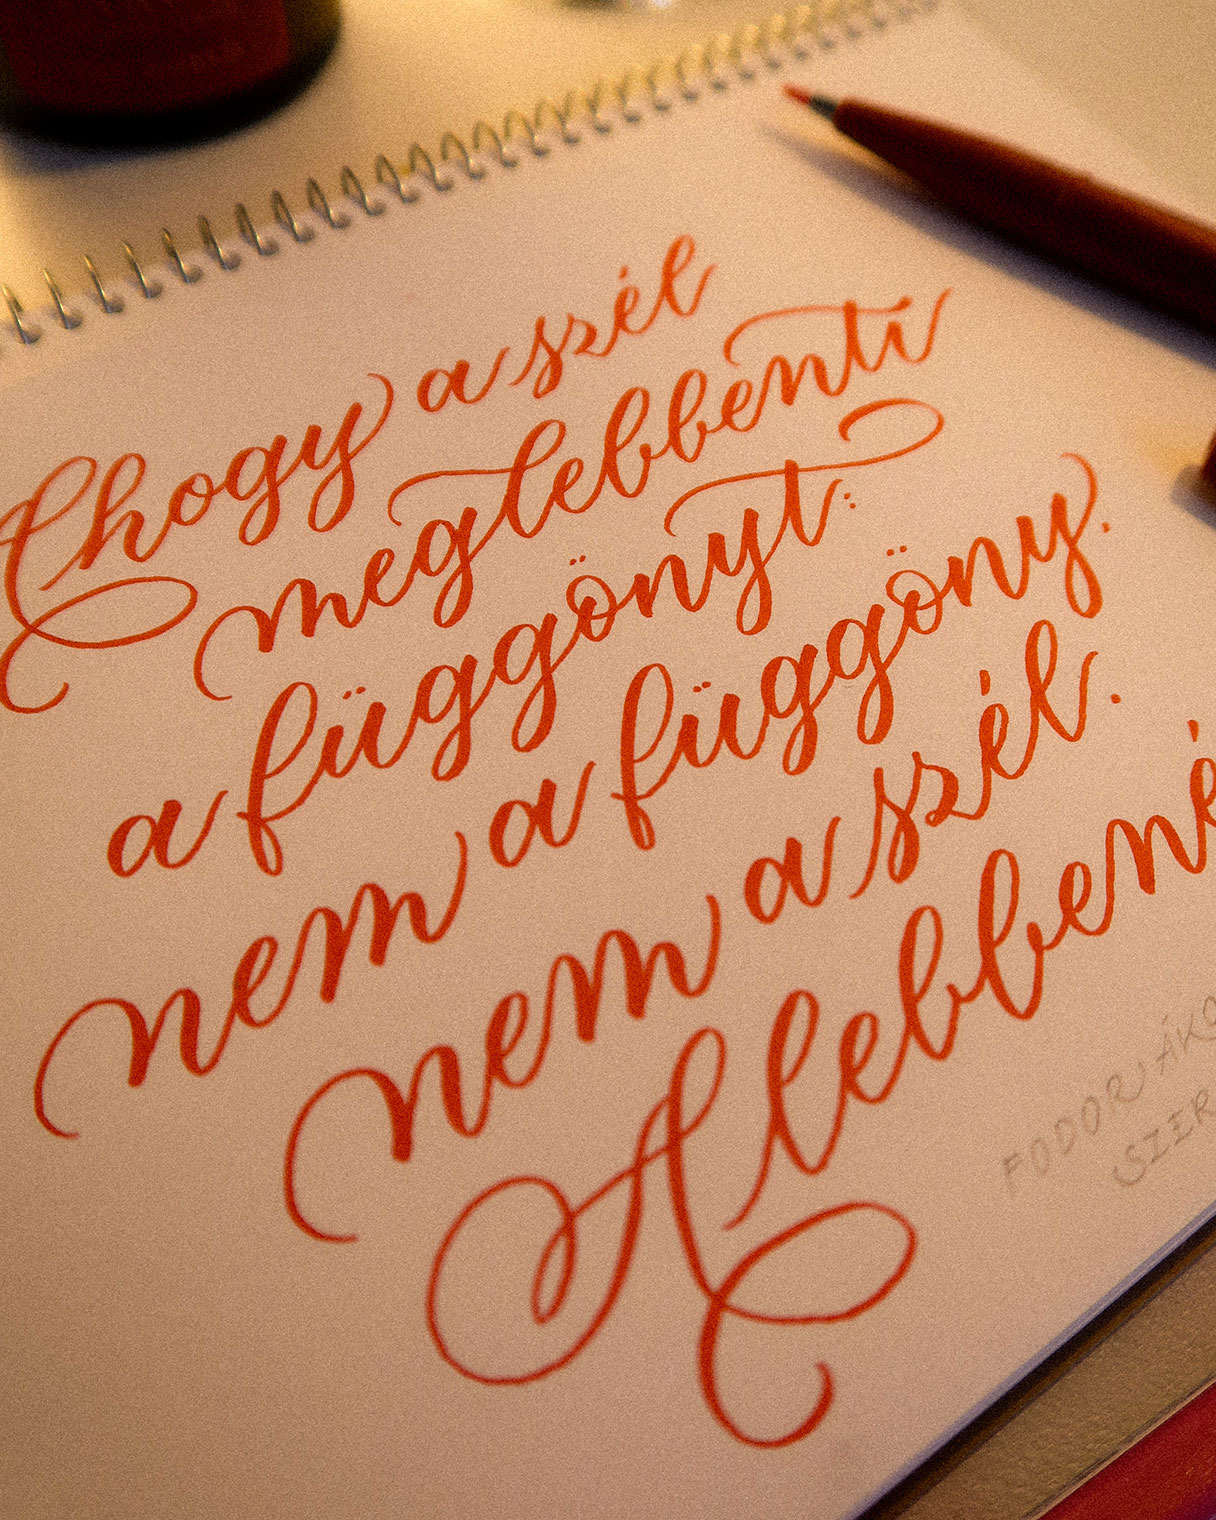 Ahogy a szél
meglebbenti
a függönyt:
nem a függöny.
nem a szél.
A lebbené
FODOR ÁKO
SZER